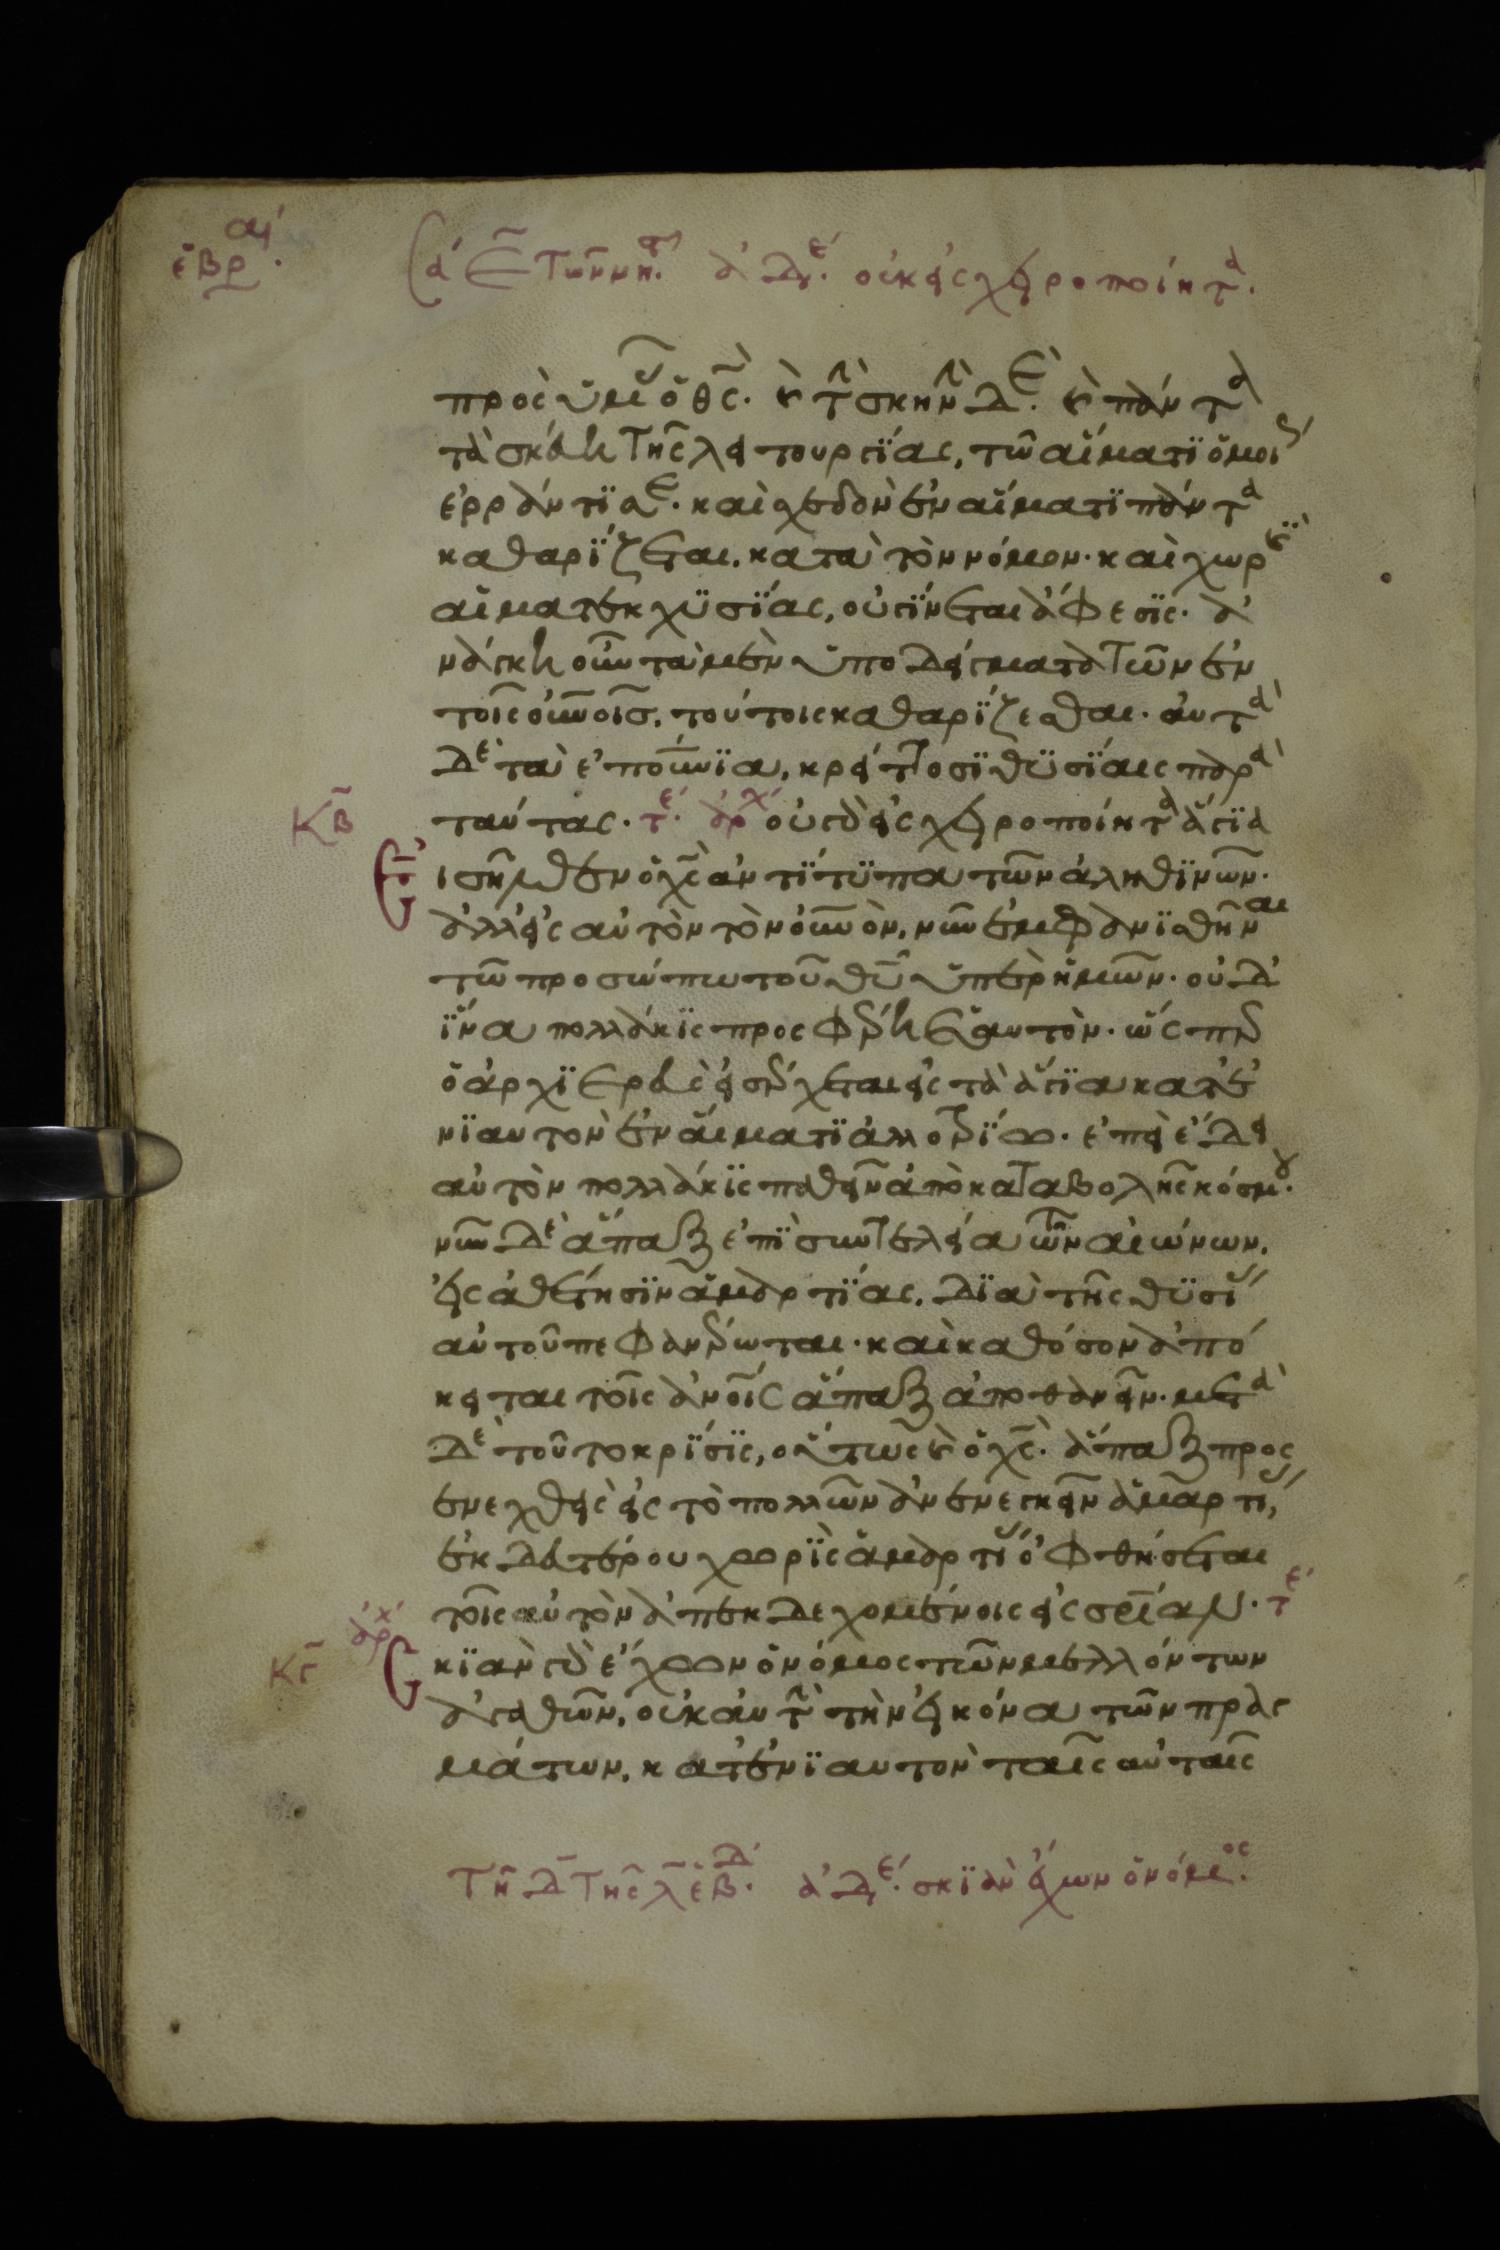 ἑβραι.
α Σα ε τῶν μη. ἀδε. οὐκ εἰς χειροποίητα.
προς ὑμᾶς ὁ θς. καὶ τὴν σκηνὴν δὲ. καὶ πάντα
τὰ σκεύη τῆς λειτουργίας, τῶ αἵματι ὁμοίως
ἐρράντισε. καὶ σχεδὸν ἐν αἵματι πάντα
καθαρίζεται. κατὰ τὸν νόμον. καὶ χωρὶς
αἱματεκχυσίας, οὐ γίνεται ἄφεσις. ἀ
νάγκη οὖν τὰ μὲν ὑποδείγματα τῶν ἐν
τοῖς οὐνοις. τούτοις καθαρίζεσθαι. αὐτὰ
δὲ τὰ ἐπουνια. κρείττοσι θυσίαις παρὰ
Κβ ταύτας. τε. ἀρχ οὐ γὰρ εἰς χειροποίητα ἅγια
εἰσῆλθεν ὁ χς ἀντίτυπα τῶν ἀληθινῶν.
ἀλλ εἰς αὐτὸν τὸν οὐνον. νῦν ἐμφανισθῆναι
τῶ προσώπω τοῦ θυ ὑπὲρ ἡμῶν. οὐδ
ἵνα πολλάκις προσφέρη ἑαυτὸν. ὥσπερ
ὁ ἀρχιερεὺς εἰσέρχεται εἰς τὰ ἅγια κατ ἐ
νιαυτὸν ἐν αἵματι ἀλλοτρίω. ἐπεὶ ἔδει
αὐτὸν πολλάκις παθεῖν ἀπὸ καταβολῆς κόσμου.
νῦν δὲ ἅπαξ ἐπὶ συντελεία τῶν αἰώνων.
εἰς ἀθέτησιν ἁμαρτίας. διὰ τῆς θυσίας
αὐτοῦ πεφανέρωται. καὶ καθόσον ἀπό
κειται τοῖς ἀνοις ἅπαξ ἀποθανεῖν. μετὰ
δὲ τοῦτο κρίσις, οὕτως καὶ ὁ χς. ἅπαξ προς
ενεχθεὶς εἰς τὸ πολλῶν ἀνενεγκεῖν ἁμαρτίας,
ἐκ δευτέρου χωρὶς ἁμαρτίας ὀφθήσεται
τοῖς αὐτὸν ἀπεκδεχομένοις εἰς σρίαν. τε
ἀρχ
Κγ κιὰν γὰρ ἔχων ὁ νόμος τῶν μελλόντων
ἀγαθῶν. οὐκ αὐτὴν τὴν εἰκόνα τῶν πραγ
μάτων. κατ ἐνιαυτὸν ταῖς αὐταῖς
Τῆ δ τῆς λε ἑβδ. ἀδε. σκιὰν ἔχων ὁ νόμος.